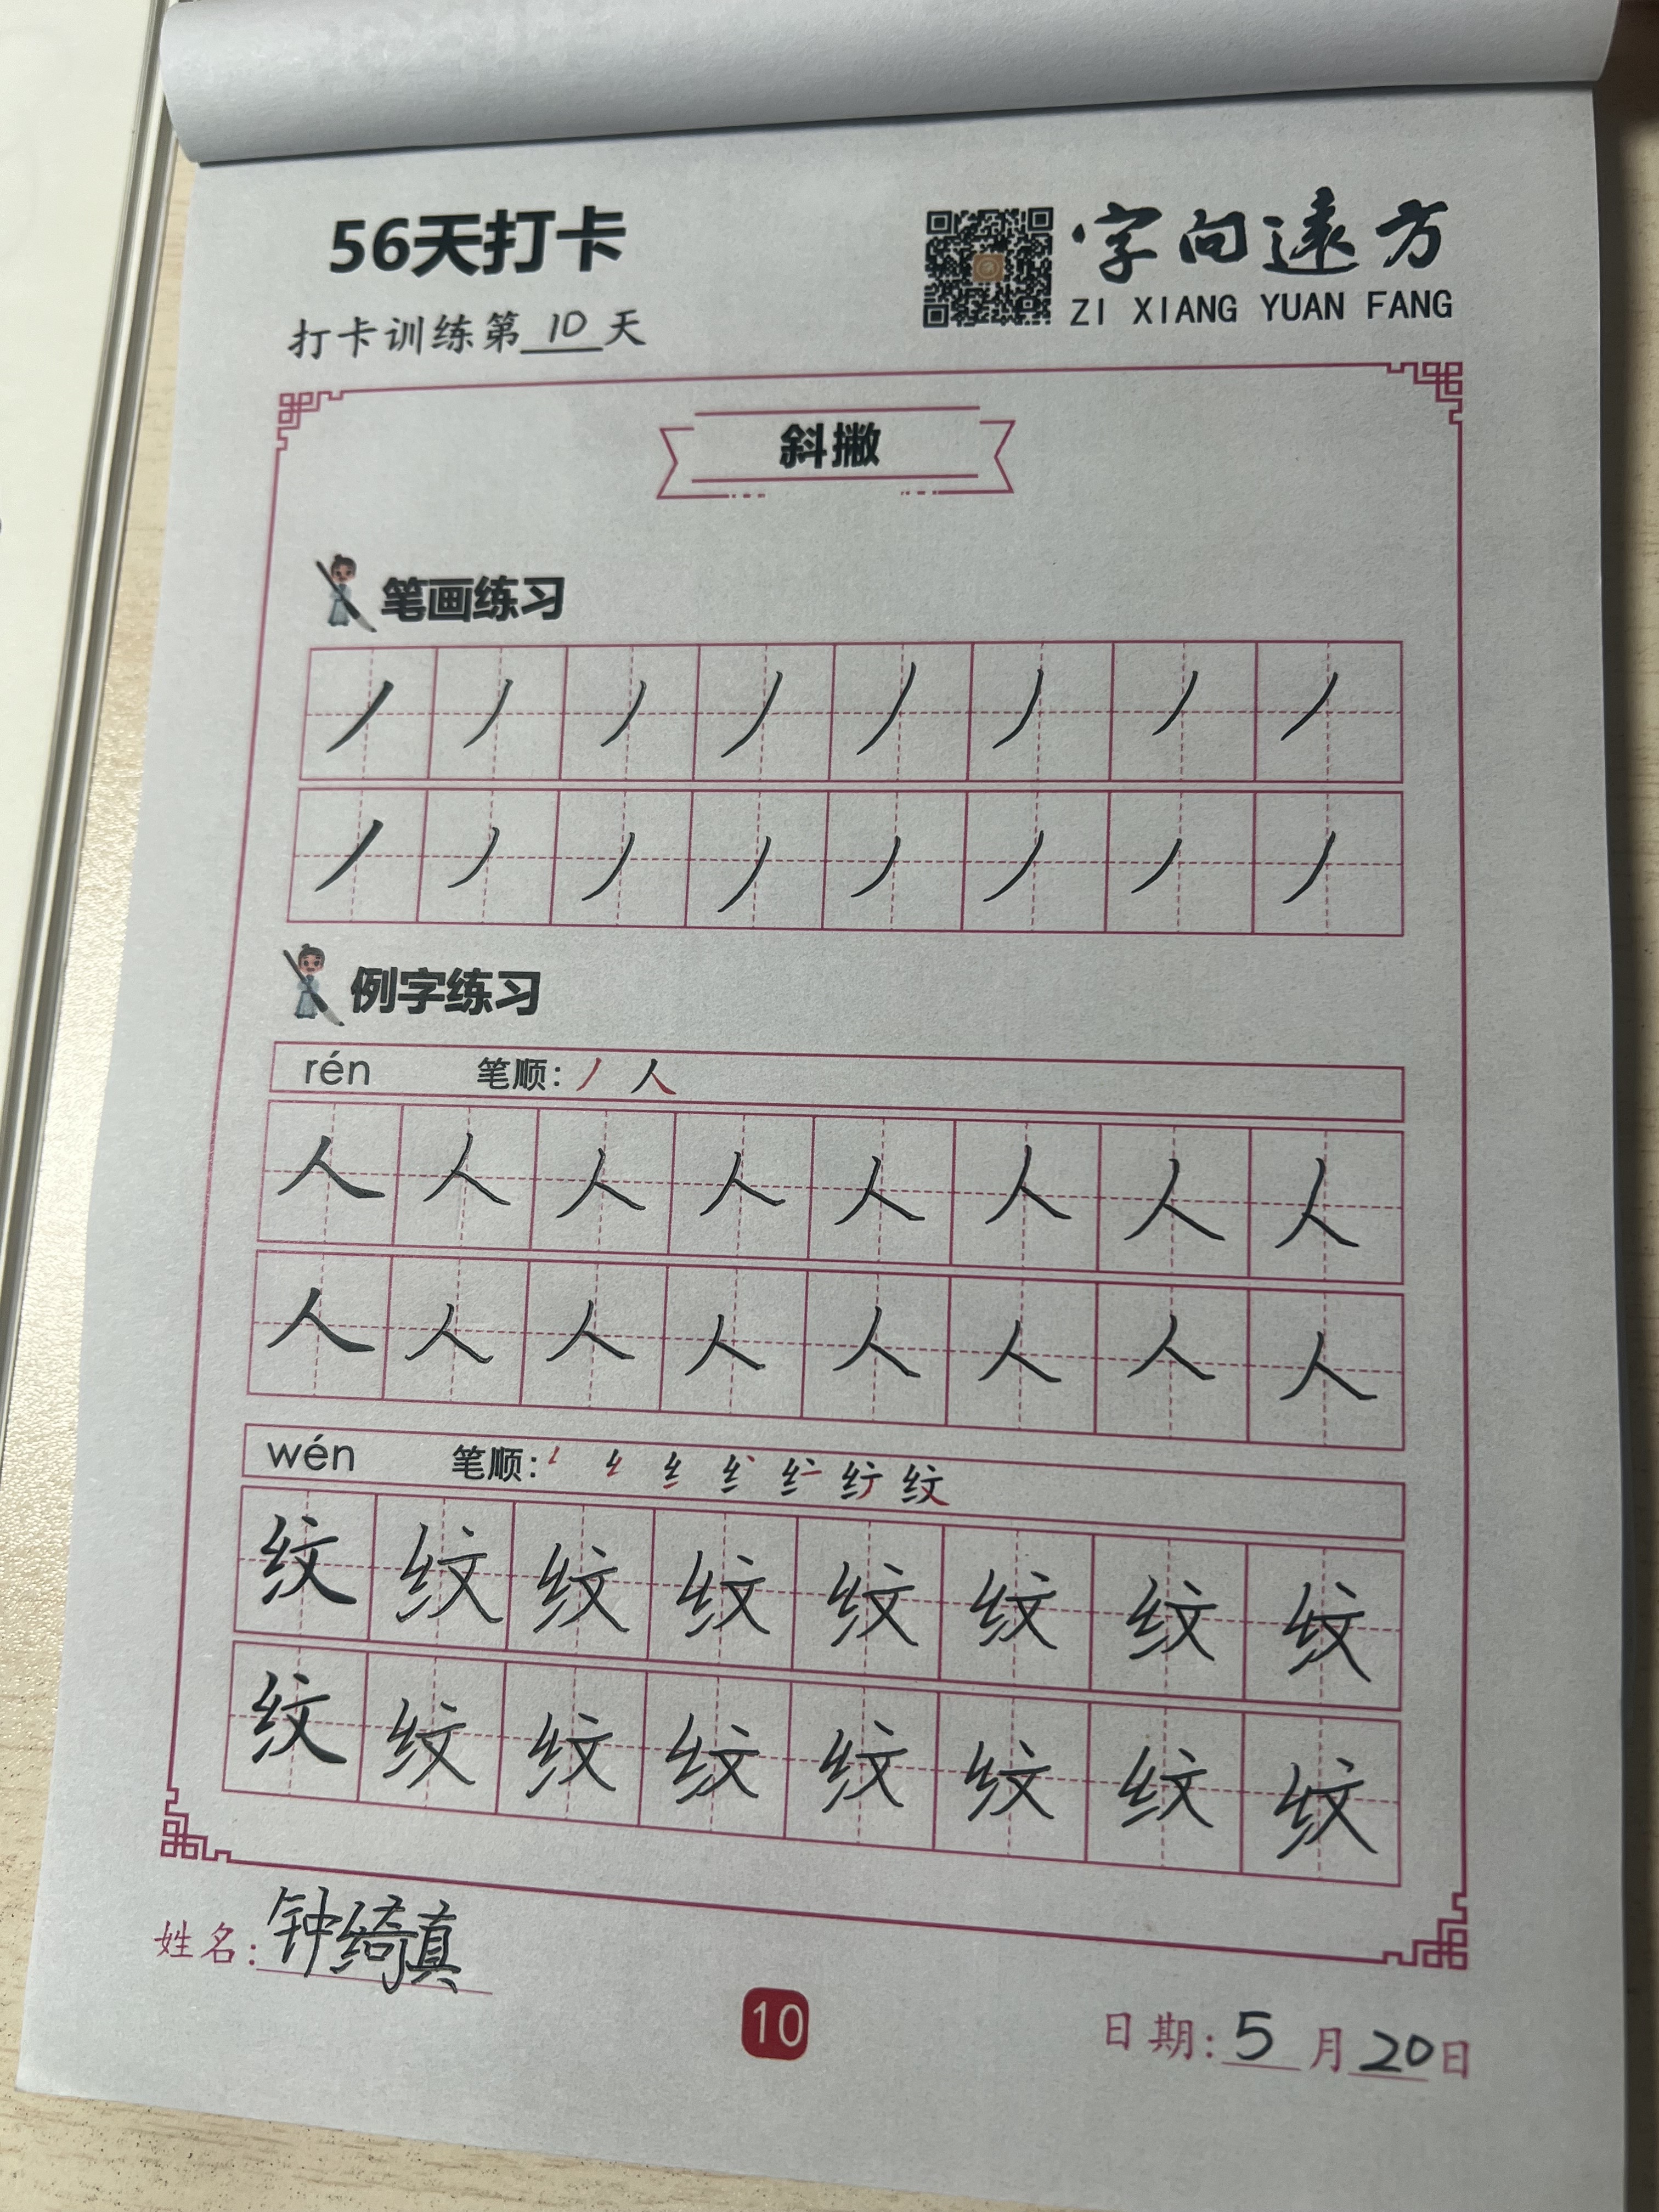 56天打卡
字向遠方
ZI XIANG YUAN FANG
打卡训练第10天
斜撇
笔画练习
丿丿丿丿丿丿丿丿
丿丿丿丿丿丿丿丿
例字练习
rén 笔顺: 丿 人
人人人人人人人人
人人人人人人人人
wén 笔顺: 纹
纹纹纹纹纹纹纹纹
纹纹纹纹纹纹纹纹
姓名: 钟绮真
10
日期: 5月20日